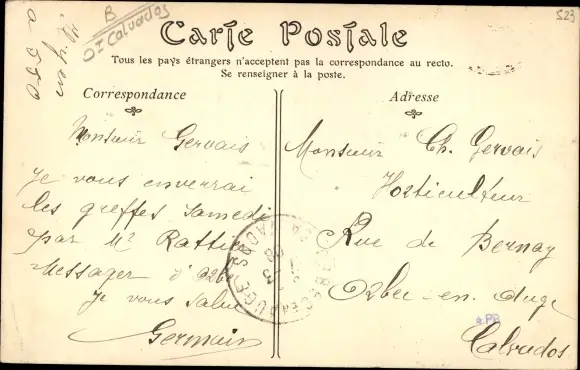 B
Dt Calvados
523
Carte Postale
Tous les pays étrangers n'acceptent pas la correspondance au recto.
Se renseigner à la poste.
Correspondance
Monsieur Gervais
Je vous enverrai
les greffes samedi
par Mr
Messager d'Orbec
Je vous salue
Germain
Adresse
Monsieur Ch. Gervais
Horticulteur
Rue de Bernay
Orbec-en-Auge
Calvados